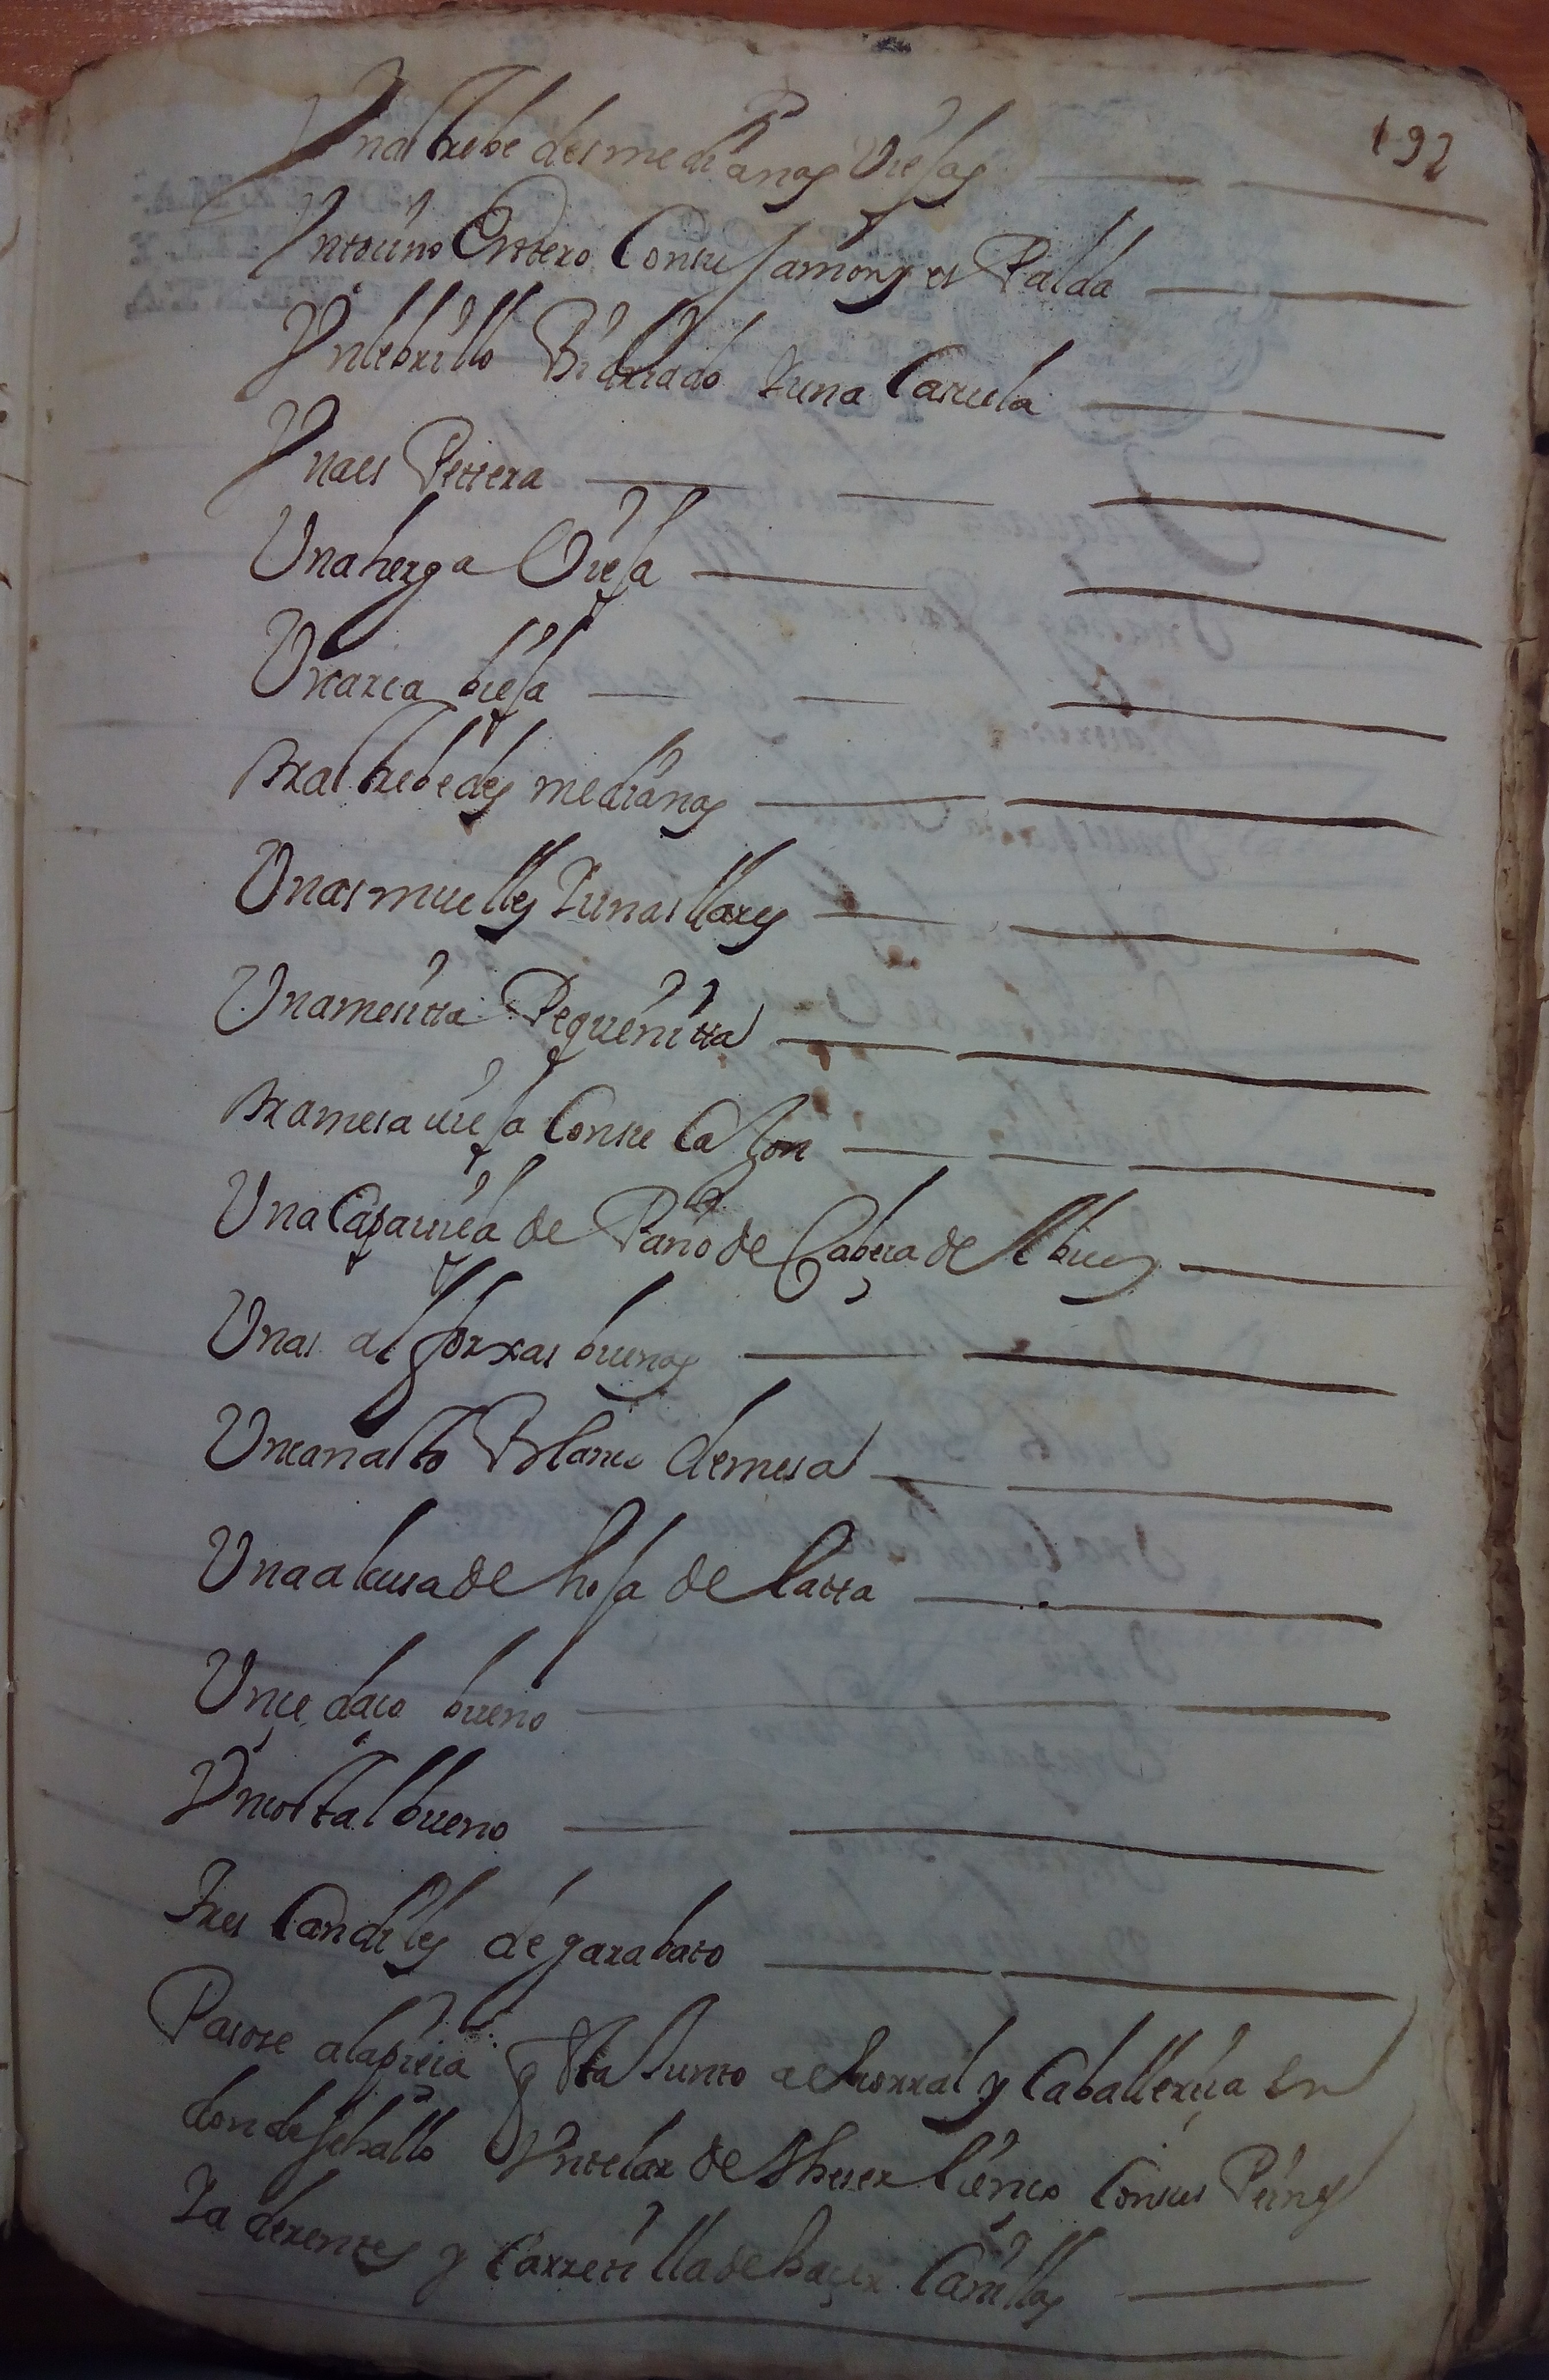 192
Unas trebedes medianas Viejas
Un tocino Entero Con su Jamon y es Palda
Un lebrillo Bidriado Y una Casuela
Una es Petera
Una herga Vieja
Un arca bieja
otras trebedes medianas
Unas muelles Y unas llares
Una mesitta Pequeñitta
otra mesa vieja Con su Cajon
Una Capa vieja de Paño de Cabeza de el buey
Unas alforxas buenas
Un canasto Blanco de mesa
Una alcusa de hoja de latta
Un çedaço bueno
Un costal bueno
Tres Candiles de garabato
Pasose a la pieza q esta Junto a el corral y Caballeriça En
donde se hallo Un telar de theser lienço Con sus Peines
Y aderentes y Carretilla de haçer Canillas